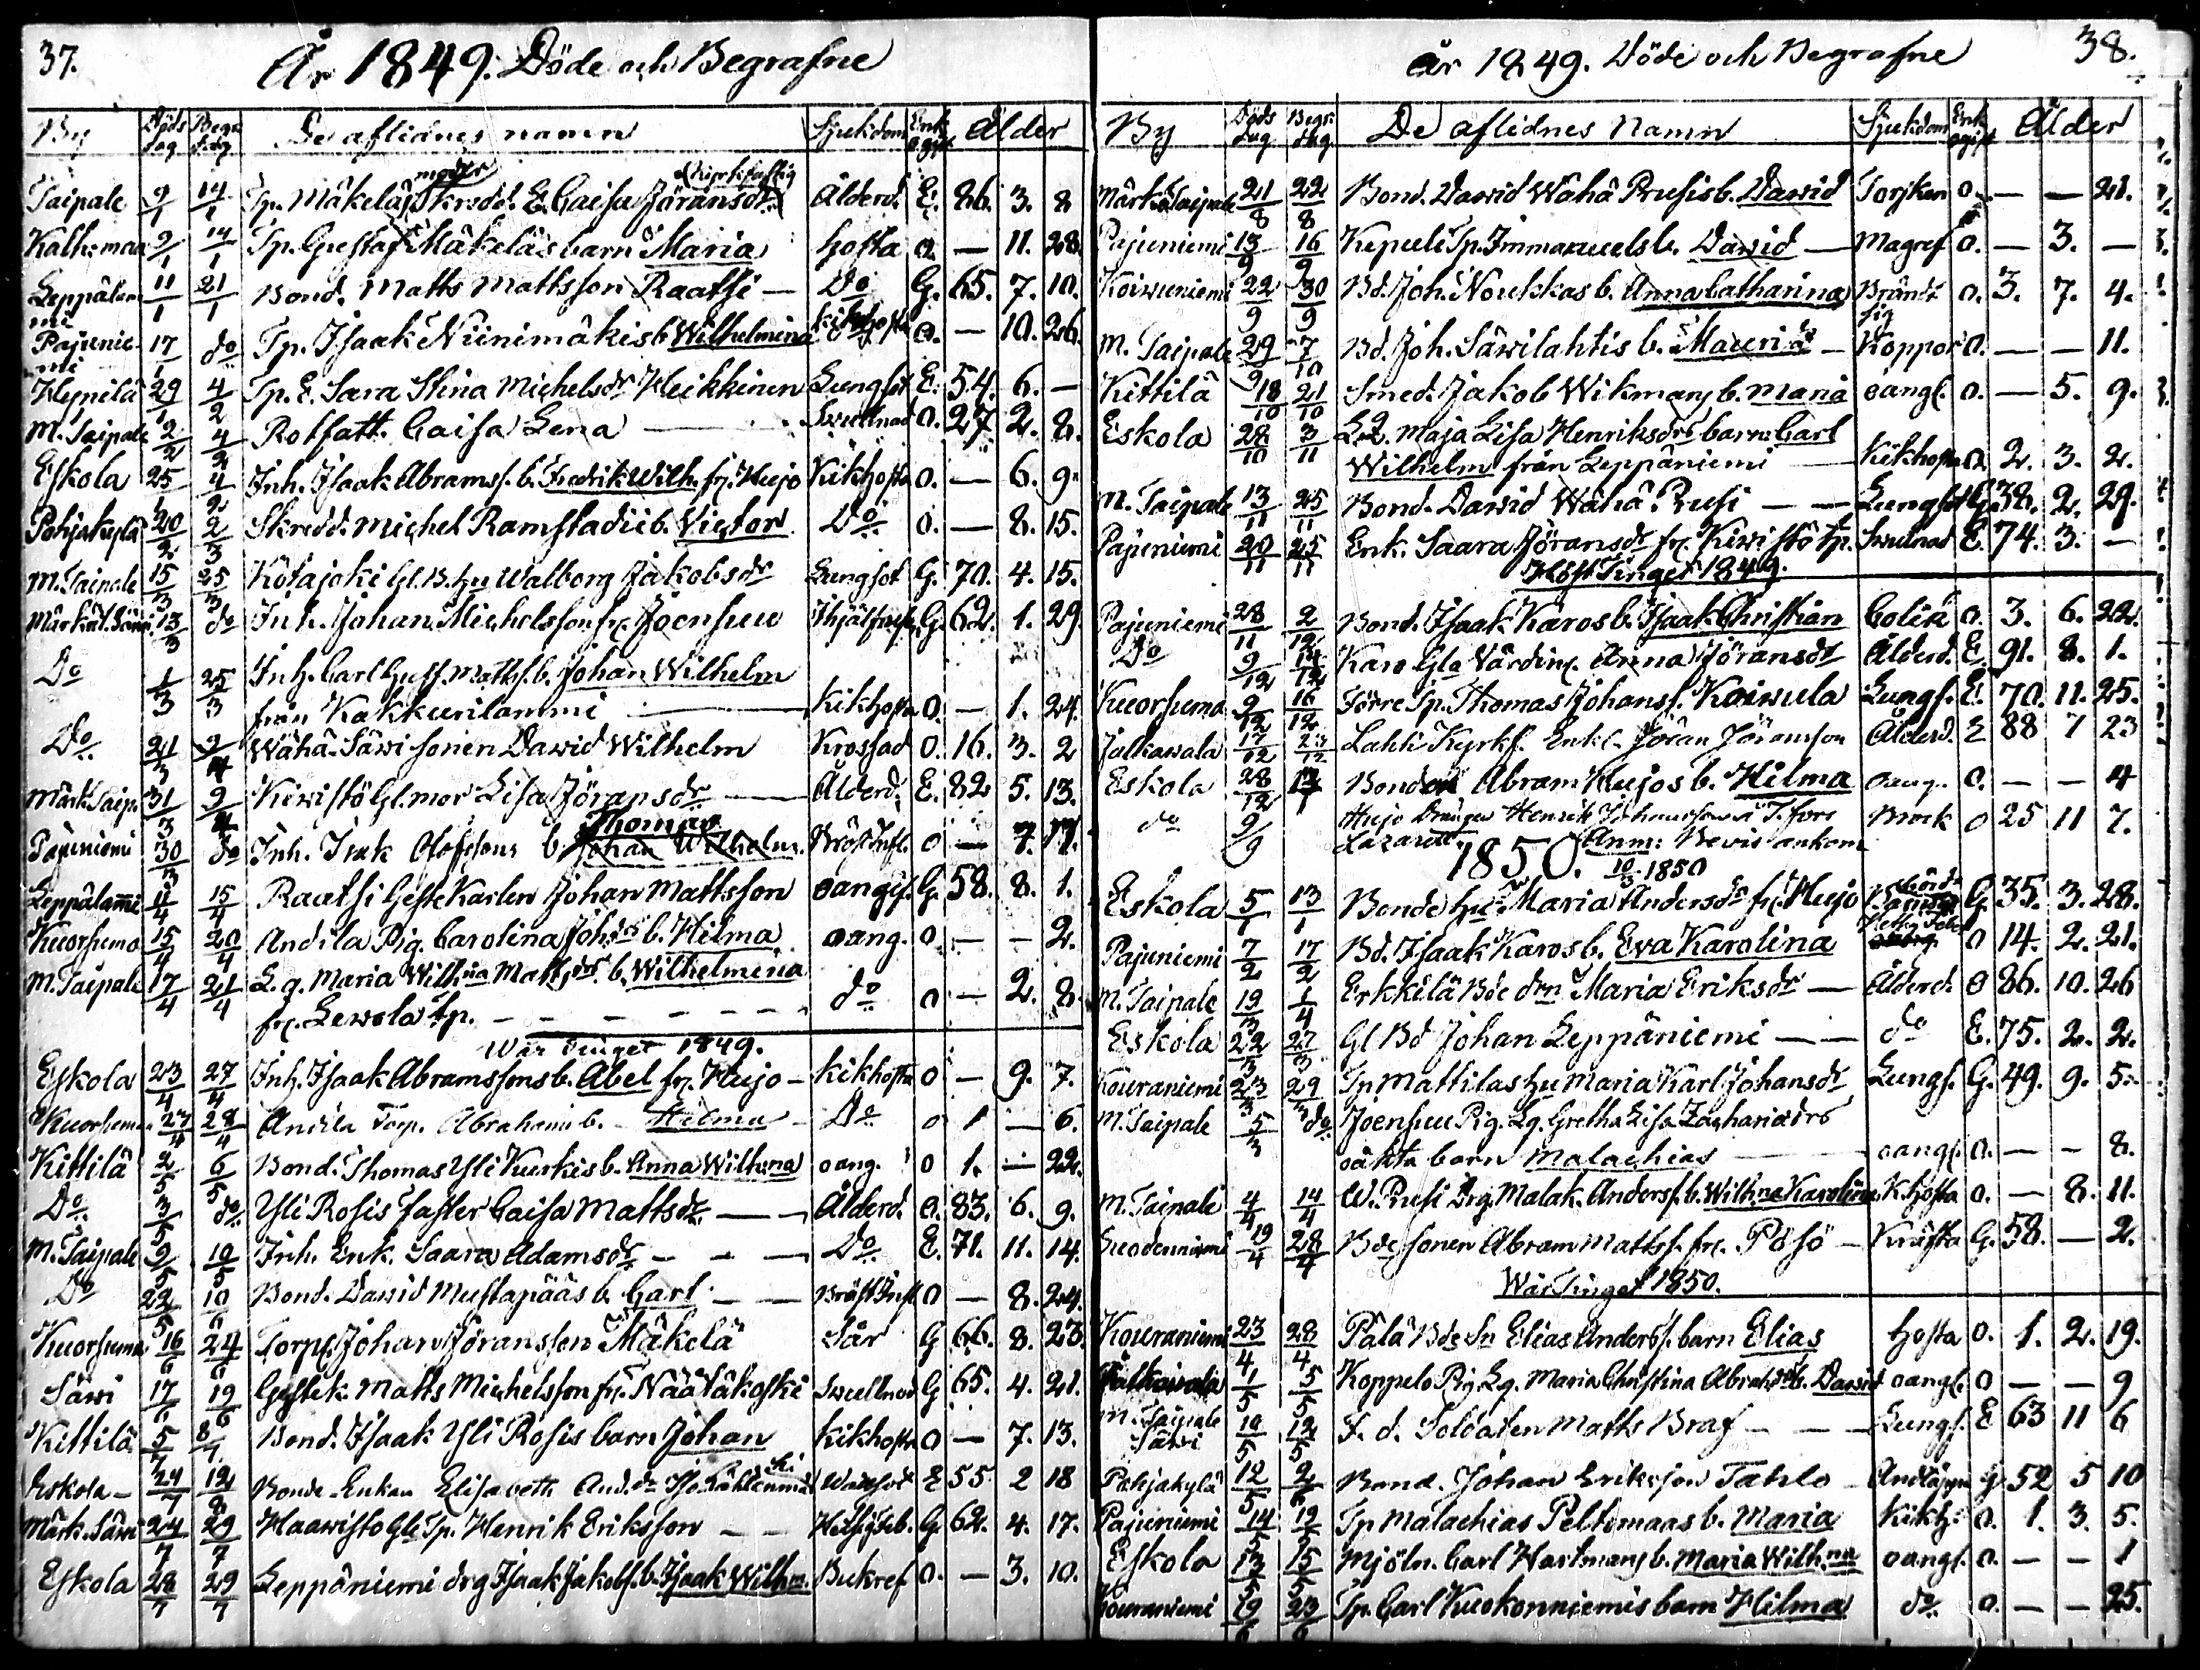 37.
År 1849. Döde och Begrafne
By Döds dag Begr. dag De aflidnes namn Sjukdom Enk. o. gift Ålder
Taipale 9/1 14/1 Tp. Mäkeläs moder E. Caisa Jöransdr Ålderd. E. 86. 3. 8
9/1 14/1 Tp. Gustaf Mäkeläs barn Maria hosta o. — 11. 28.
Leppälammi 11/1 21/1 Bond. Matts Mattsson Raatsi — Do G. 65. 7. 10.
Pajuniemi 17/1 do Tp. Isaak Niinimäkis b. Wilhelmina kikhosta o. — 10. 26.
Hypnilä 29/1 4/2 Tp. E. Sara Stina Michelsdr Heikkinen Lungsot E. 54. 6. —
M. Taipale 2/2 4/2 Rotfatt. Caisa Lena — Swullnad o. 27 2. 8.
Eskola 25/1 4/2 Inh. Isaak Abramss. b. Fredrik Wilh. fr. Hujo Kikhosta o. — 6. 9.
Pohjakylä 20/2 2/3 Skredd. Michel Ramstadii b. Victor Do. o. — 8. 15.
M. Taipale 15/3 25/3 Kotajoki Gl. B. hu Walborg Jakobsdr Lungsot G. 70. 4. 15.
13/3 do Inh. Johan Michelsson fr. Joensuu G. 62. 1. 29.
Do 1/3 25/3 Inh. Carl Gust. Matts. b. Johan Wilhelm
från Kakkurilammi — kikhosta o. — 1. 24.
Do. 21/3 9/4 Wähä-Säwi sonen Dawid Wilhelm Krossad o. 16. 3. 2
Märk. Taip. 31/3 9/4 Kiwistö Gl. mor Lisa Jöransdr — Ålderd. E. 82 5. 13.
Thomas
Pajuniemi 30/3 do Inh. Isak Olofssons b. Johan Wilhelm. Bröst Infl. o — 7. 17.
Leppälammi 11/4 15/4 Raatsi Geste Karlen Johan Mattsson oangif. G. 58. 8. 1.
Kuorsumo 15/4 20/4 Andila Pig. Carolina Johsdrs b. Hilma oang. o — - 2.
M. Taipale 17/4 21/4 L. q. Maria Wilhna Mattsdrs b. Wilhelmina
fr. Lewola tp. — do o — 2. 8.
Wår Tinget 1849.
Eskola 23/4 27/4 Inh. Isaak Abramssons b. Abel fr. Hujo — kikhosta o — 9. 7.
27/4 28/4 Andila Torp. Abrahams b. Hilma Do o 1 — 6.
Kittilä 2/5 6/5 Bond. Thomas Yli Kuurkis b. Anna Wilhna oang. o 1. — 22.
Do. 3/5 do. Yli Rosis faster Caisa Mattsdr — Ålderd. o. 83. 6. 9.
M. Taipale 9/5 10/5 Inh. Enk. Saara Adamsdr — Do. E. 71. 11. 14.
Do 22/5 10/6 Bond. Dawid Mustapääs b. Carl — Bröst Infl. o — 8. 24.
Kuorsumo 16/6 24/6 Torp. Johan Jöransson Mäkelä Sår G 66. 8. 23.
Säwi 17/6 19/6 Gestek. Matts Michelsson fr. Näätäkoski Swullnad G 65. 4. 21.
Kittilä 5/7 8/7 Bond. Isaak Yli Rosis barn Johan kikhosta o — 7. 13.
Eskola — 24/7 12/8 Bonde Enkan Elisabeth And.dr Wattsot E 55 2 18
Märk. Säwi 24/7 29/7 Haawisto Gle Tp. Henrik Eriksson — Hetsig feb. G 62. 4. 17.
Eskola 28/7 29/7 Leppäniemi drg Isaak Jakobs. b. Isaak Wilhm. Bukref o. — 3. 10.
38.
År 1849. Döde och Begrafne
By Döds dag Begr. dag. De aflidnes Namn Sjukdom Enk. o gift Ålder
Märk. Taipale 21/8 22/8 Bond. Dawid Wähä Rusis b. Dawid Torsken o. — — 21.
Pajuniemi 13/9 16/9 Kupuli Tp. Immanuels b. Dawid — Magref o. — 3. —
Koiwuniemi 22/9 30/9 Bd. Joh. Noukkas b. Anna Catharina o. 3. 7. 4.
M. Taipale 29/9 7/10 Bd. Joh. Säwilahtis b. Mauriz — Koppor o. — — 11.
Kittilä 18/10 21/10 Smed. Jakob Wikmans b. Maria oangf. o. — 5. 9.
Eskola 28/10 3/11 L. Q. Maja Lisa Henriksdrs barn Carl
Wilhelm från Leppäniemi — Kikhosta o. 2. 3. 2.
M. Taipale 13/11 25/11 Bond. Dawid Wähä Rusi — — Lungsot G. 38. 2. 29.
Pajuniemi 20/11 25/11 Enk. Saara Jöransdr fr. Kiwistö tp. Swulnad E. 74. 3. —
Höst Tinget 1849.
Pajuniemi 28/11 2/12 Bond. Isaak Karos b. Isaak Christian Colik o. 3. 6. 22.
Do 9/12 14/12 Karo Gla Värdin. Anna Jöransdr Ålderd. E. 91. 8. 1.
Kuorsumo 9/12 16/12 Förre Tp. Thomas Johans. Koiwula Lungs. E. 70. 11. 25.
Jalkawala 17/12 23/12 Lahti Kyrks. Enkl. Jöran Jöransson Ålderd. E 88 7 23
Eskola 28/12 Bonden Abram Hujos b. Hilma oang. o. — — 4
do 9/9 Hujo Drängen Henrik Johansson i T.fors Brock o 25 11 7.
Lazarett. Anm: Bevis ankom
1850. 10/3 1850
Eskola 5/1 13/1 Bonde hu. Maria Andersdr fr. Hujo G. 35. 3. 28.
Pajuniemi 7/2 17/2 Bd. Isaak Karos b. Eva Karolina o 14. 2. 21.
M. Taipale 19/3 1/4 Erkkilä Bde drn Maria Eriksdr — Ålderd. o 86. 10. 26
Eskola 22/3 27/3 Gl Bd Johan Leppäniemi — — do E. 75. 2. 2.
Kouraniemi 23/3 29/3 Tp Mattilas hu Maria Karl Johansdr Lungs. G. 49. 9. 5.
M. Taipale 5/3 do. Joensuu Pig. Lq. Gretha Lisa Zachariasdrs
oäkta barn Malachias — oangf. o. — — 8.
M. Taipale 4/4 14/4 W. Rusi Drg. Malak. Anderss. b. Wilhna Karolina K. hosta o. — 8. 11.
19/4 28/4 Bde sonen Abram Mattss. fr. Pösö — Kräfta G. 58. — 2.
Wår Tinget 1850.
Kouraniemi 23/4 28/4 Pälä Bde Sn Elias Anderss. barn Elias hosta o. 1. 2. 19.
Jalkawala 1/5 5/5 Koppelo Pig. Lq. Maria Christina Abrahsdrs b. Dawid oangf. o — — 9
M. Taipale
Säwi 10/5 12/5 F. d. Soldaten Matts Braf — — Lungs. E 63 11 6
Pohjakylä 12/5 2/6 Bond. Johan Eriksson Tahlo — G. 52 5 10
Pajuniemi 14/5 19/5 Tp Malachias Peltomaas b. Maria Kikh: o. 1. 3. 5.
Eskola 13/5 15/5 Mjöln. Carl Hartmans b. Maria Wilh.na oangf. o. — — 1
Kouraniemi 19/6 23/6 Tp. Carl Kuokonniemis barn Hilma do. o. — — 25.